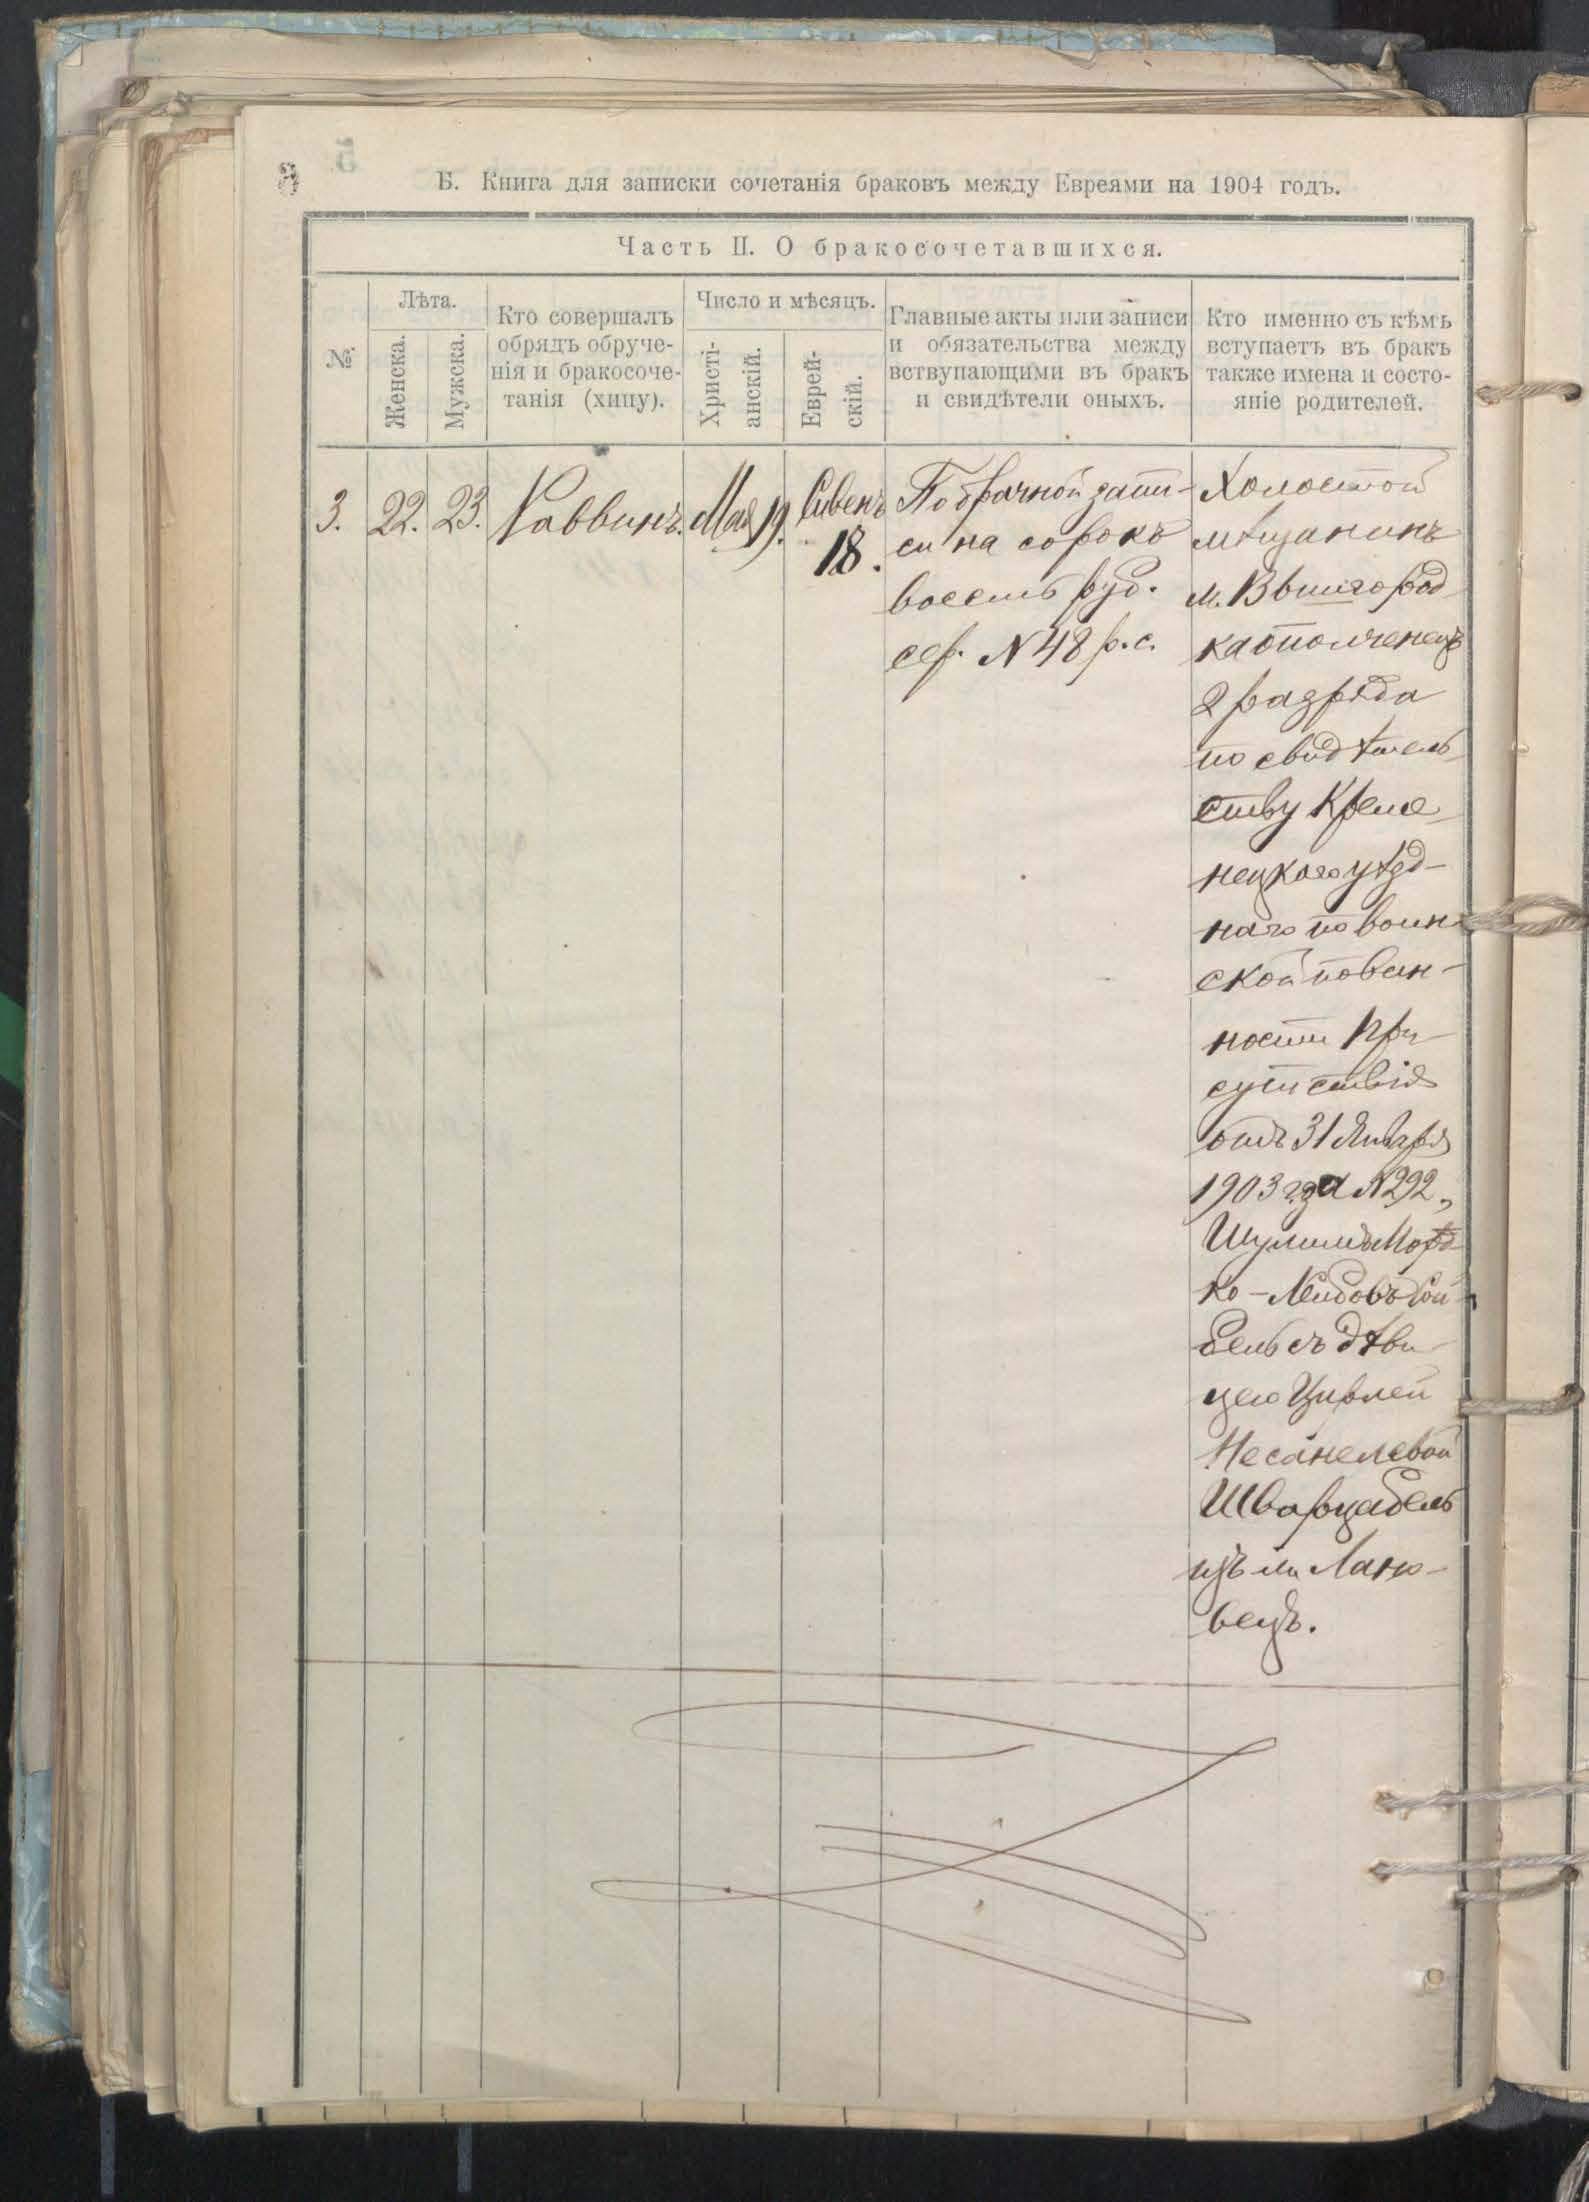 Б. Книга для записки сочетанія браковъ между Евреями на 1904 годъ.
Часть II. О бракосочетавшихся.
№
Лѣта.
Женска.
Мужска.
Кто совершалъ
обрядъ обруче-
нія и бракосоче-
танія (хипу).
Число и мѣсяцъ.
Христі-
анскій.
Еврей-
скій.
Главные акты или записи
и обязательства между
вствупающими въ бракъ
и свидѣтели оныхъ.
Кто именно съ кѣмъ
вступаетъ въ бракъ
также имена и состо-
яніе родителей.
3.
22.
23.
Раввинъ.
Мая 19.
Сивенъ
18.
По брачной запи-
си на сорокъ
восемь руб.
сер. N 48 р. с.
Холостой
мѣщанинъ
м. Вышгород
ка ополченецъ
2 разряда
по свидѣтель
ству Креме
нецкаго уѣзд-
наго по воин
ской повин-
ности При
сутствія
отъ 31 Января
1903 года N 292,
Шулимъ Морд
ко-Лейбовъ Сой
бель съ дѣви
цею Цирлей
Несанелевой
Шварцабель
изъ м. Ланo-
вецъ.